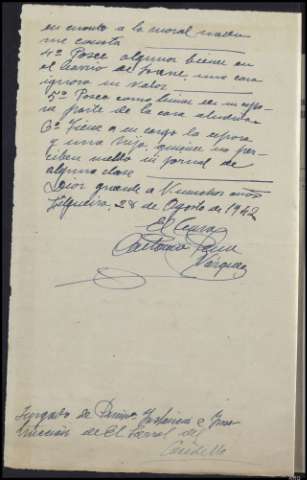 en cuanto a la moral nada
me consta
4º Posee algunos bienes en
el barrio de una casa
ignoro su valor
5º Posee como bienes de su espo-
sa parte de la casa aludida
6º Tiene a su cargo la esposa
y una hija, quienes no per-
ciben sueldo ni jornal de
alguna clase
Dios guarde a V. muchos años
28 de Agosto de 1942
El Cura
Vazquez
Juzgado de Primera Instancia e Ins-
trucción de El Ferrol del
Caudillo